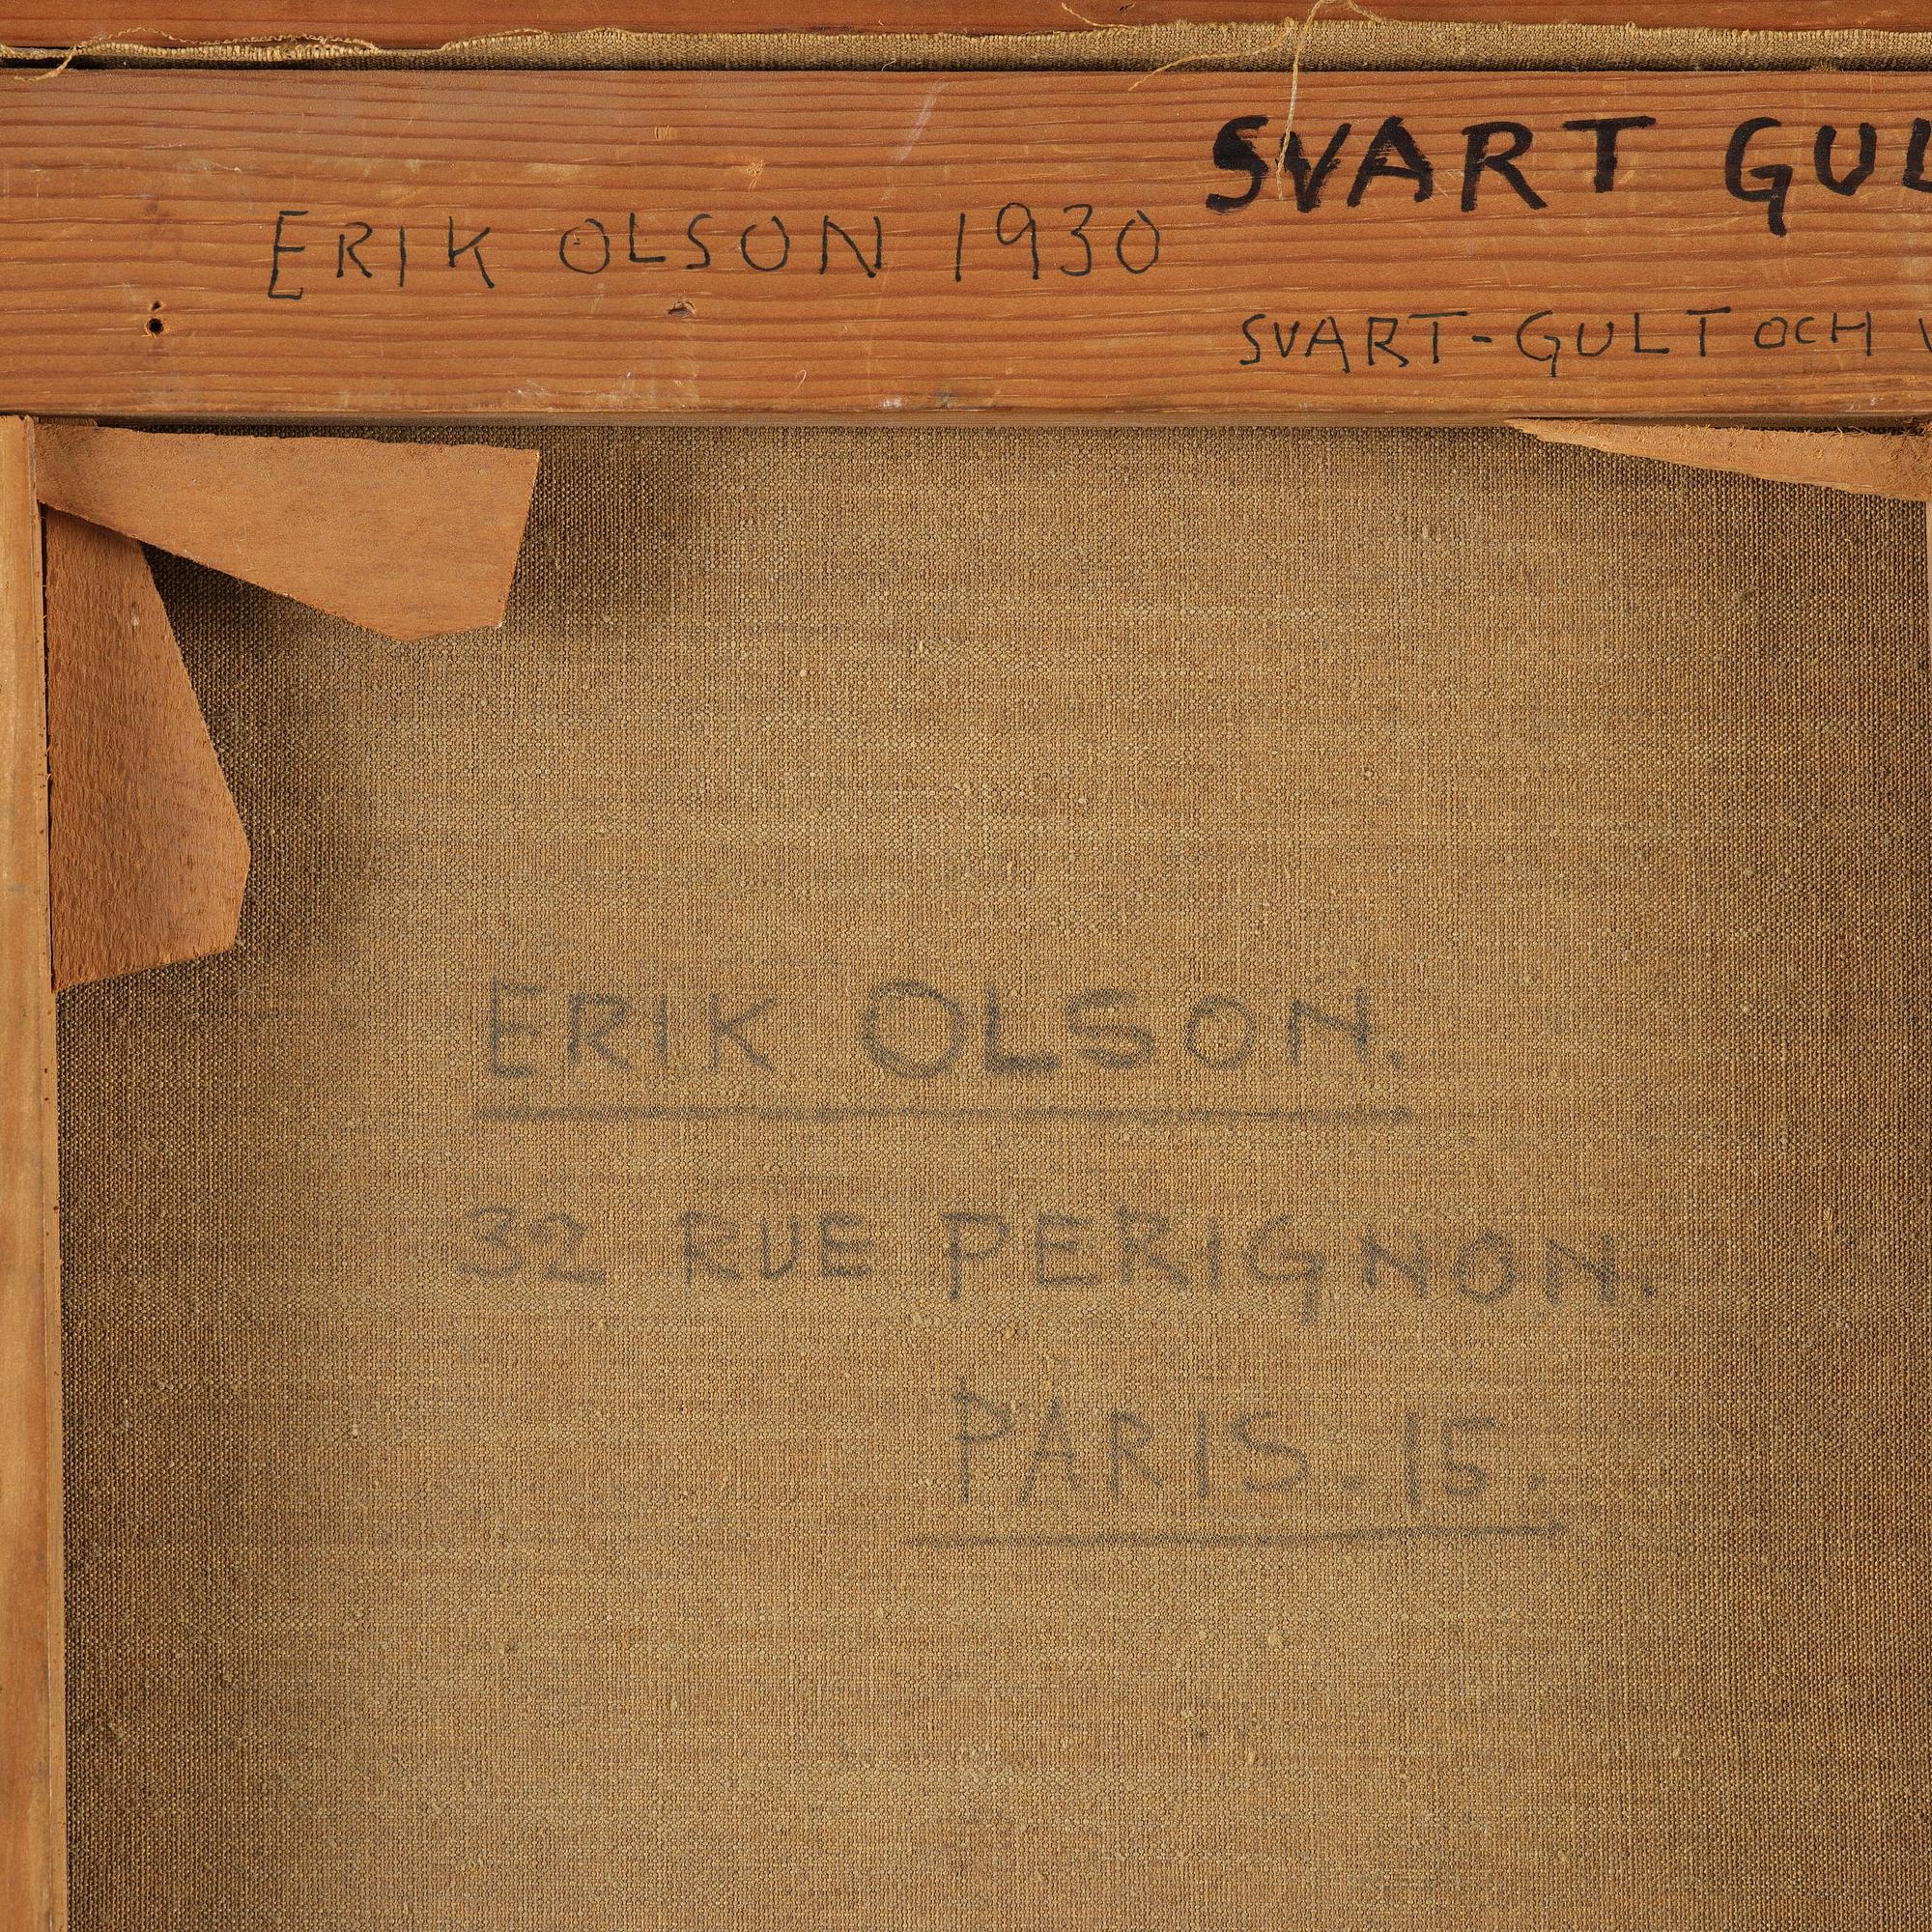 SVART GUL
ERIK OLSON 1930
SVART-GULT OCH V
ERIK OLSON.
32 RUE PERIGNON.
PARIS. 15.